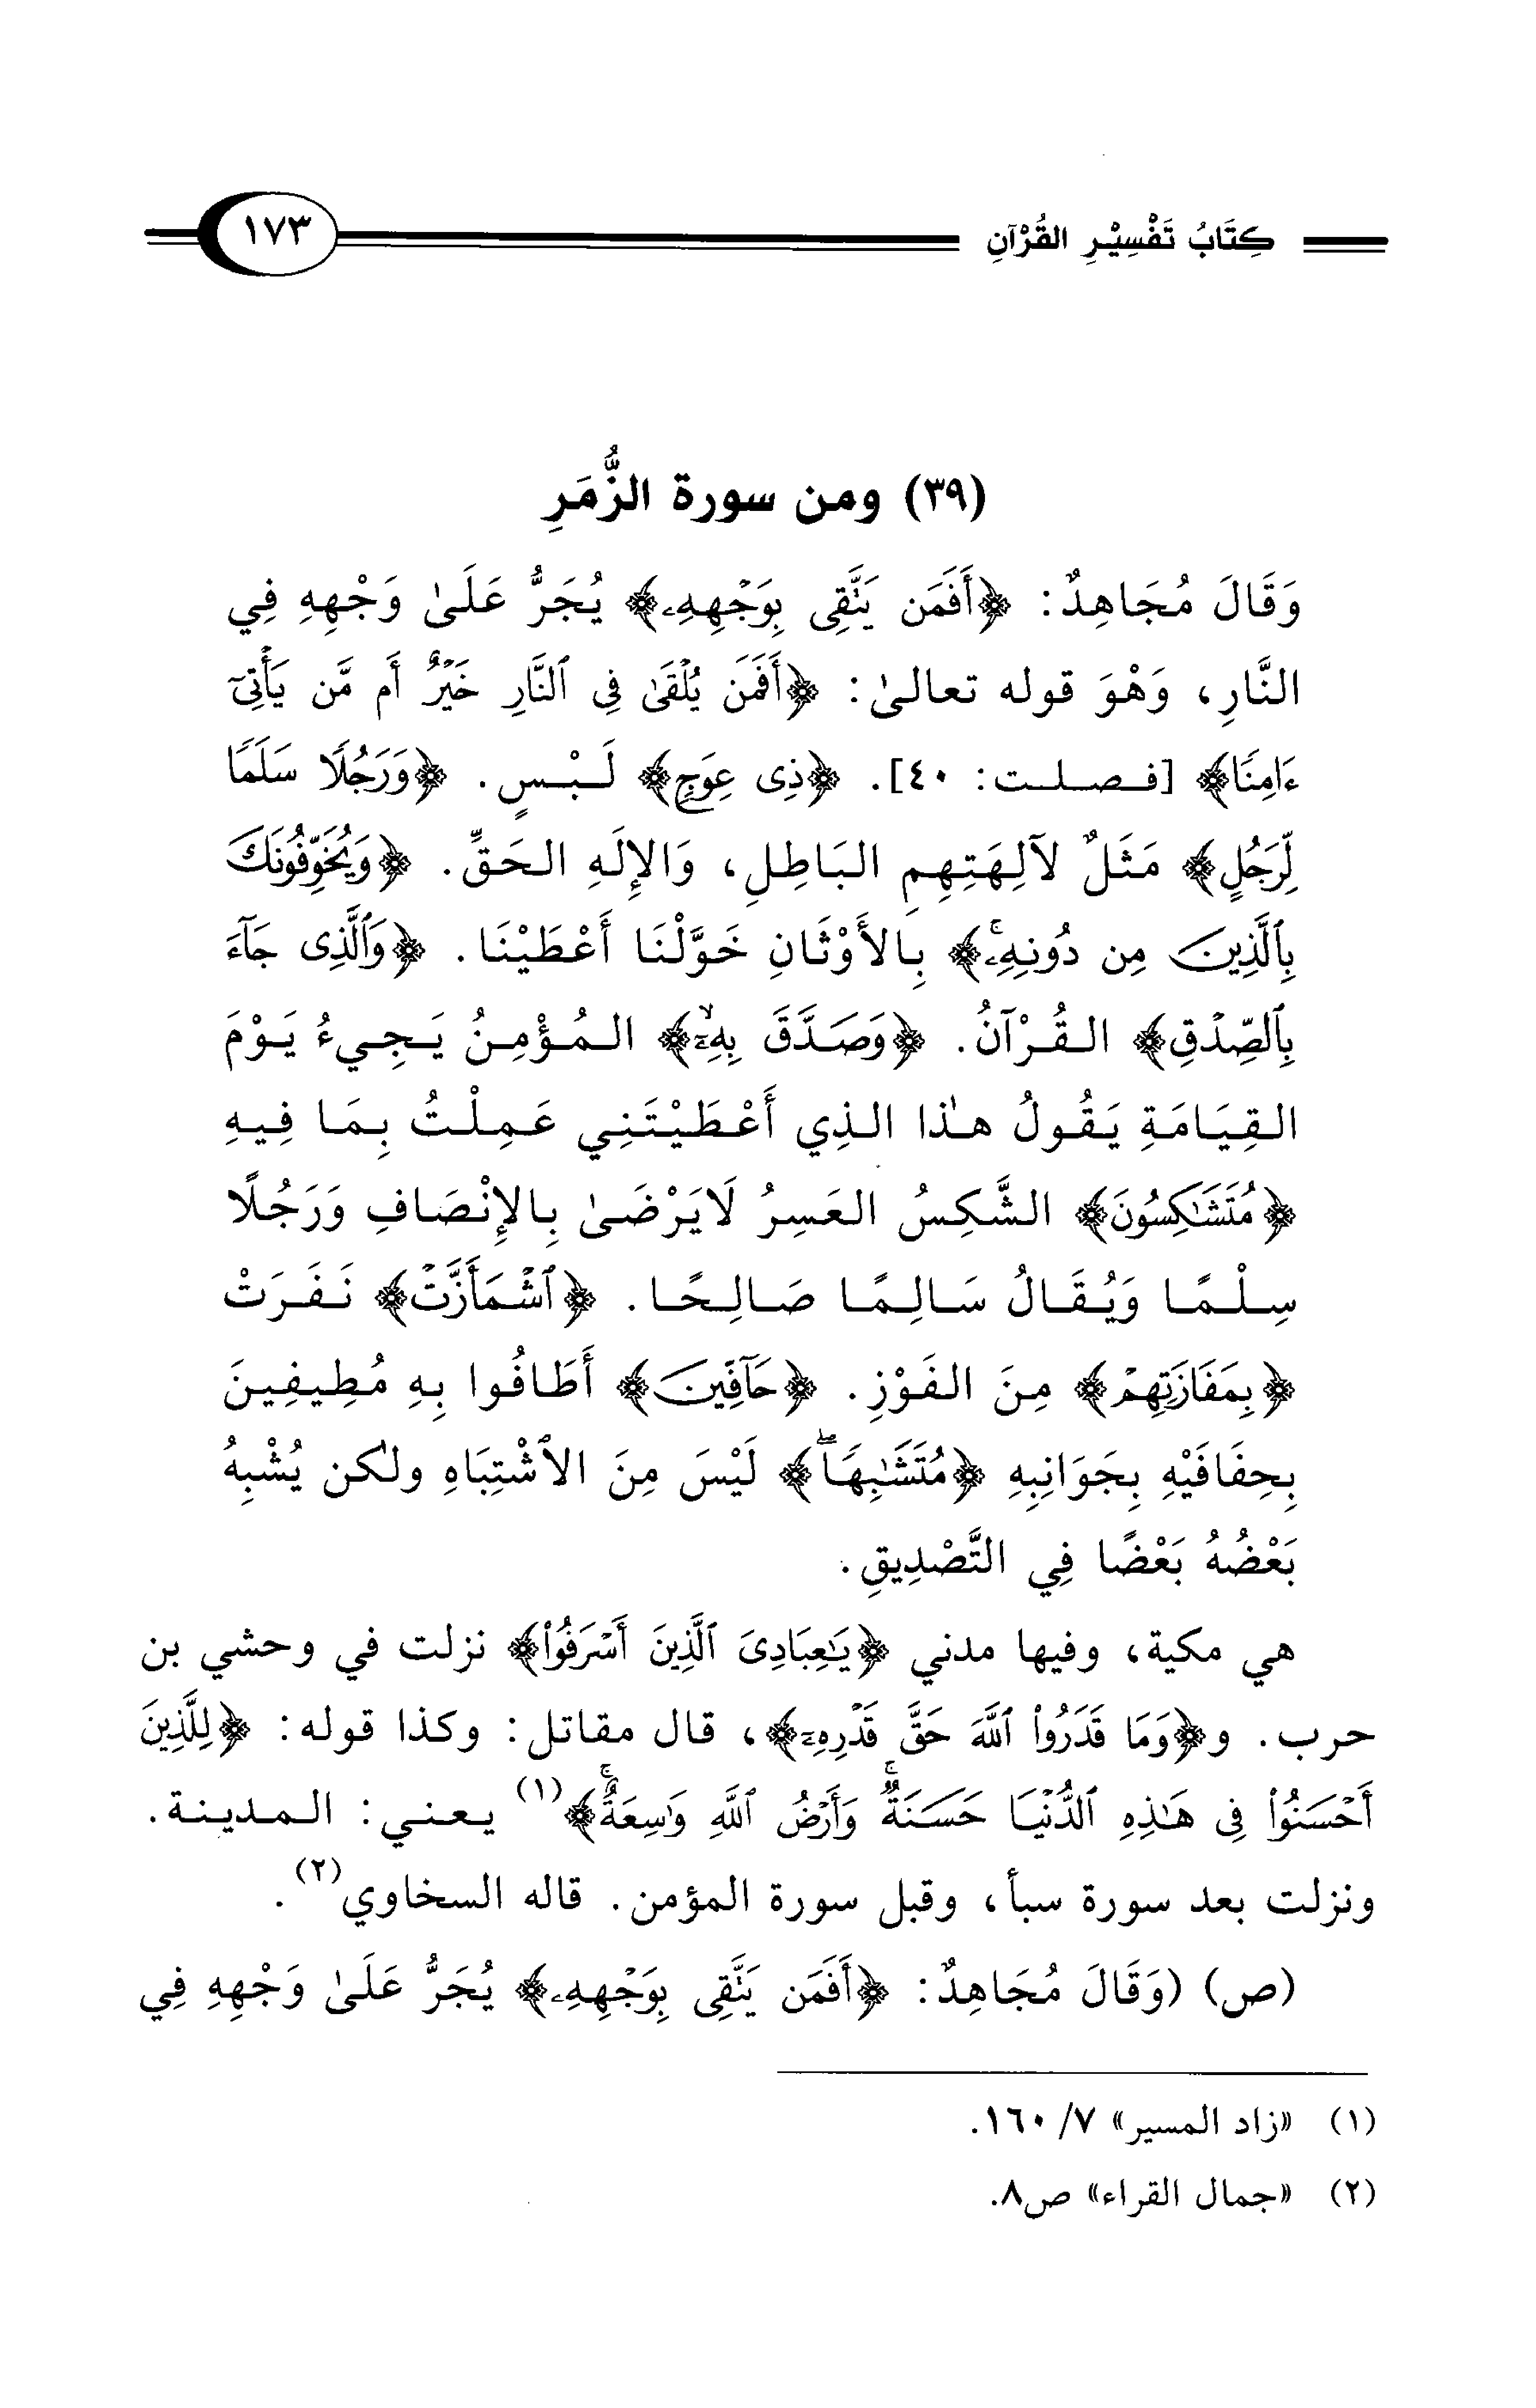 كِتَابُ تَفْسِيْرِ القُرْآنِ ١٧٣
(٣٩) ومن سورة الزُّمَرِ
وَقَالَ مُجَاهِدٌ: ﴿أَفَمَن يَتَّقِى بِوَجْهِهِۦ﴾ يُجَرُّ عَلَىٰ وَجْهِهِ فِي
النَّارِ، وَهْوَ قوله تعالىٰ: ﴿أَفَمَن يُلْقَىٰ فِى ٱلنَّارِ خَيْرٌ أَم مَّن يَأْتِىٓ
ءَامِنًا﴾ [فصلت: ٤٠]. ﴿ذِى عِوَجٍ﴾ لَبْسٍ. ﴿وَرَجُلًا سَلَمًا
لِّرَجُلٍ﴾ مَثَلٌ لآلِهَتِهِم البَاطِلِ، وَالإِلَهِ الحَقِّ. ﴿وَيُخَوِّفُونَكَ
بِٱلَّذِينَ مِن دُونِهِۦۚ﴾ بِالأَوْثَانِ خَوَّلْنَا أَعْطَيْنَا. ﴿وَٱلَّذِى جَآءَ
بِٱلصِّدْقِ﴾ القُرْآنُ. ﴿وَصَدَّقَ بِهِۦٓۙ﴾ المُؤْمِنُ يَجِيءُ يَوْمَ
القِيَامَةِ يَقُولُ هٰذا الذِي أَعْطَيْتَنِي عَمِلْتُ بِمَا فِيهِ
﴿مُتَشَٰكِسُونَ﴾ الشَّكِسُ العَسِرُ لَايَرْضَىٰ بِالإِنْصَافِ وَرَجُلًا
سِلْمًا وَيُقَالُ سَالِمًا صَالِحًا. ﴿ٱشْمَأَزَّتْ﴾ نَفَرَتْ
﴿بِمَفَازَتِهِمْ﴾ مِنَ الفَوْزِ. ﴿حَآفِّينَ﴾ أَطَافُوا بِهِ مُطِيفِينَ
بِحِفَافَيْهِ بِجَوَانِبِهِ ﴿مُتَشَٰبِهًاۖ﴾ لَيْسَ مِنَ الاٌشْتِبَاهِ ولكن يُشْبِهُ
بَعْضُهُ بَعْضًا فِي التَّصْدِيقِ.
هي مكية، وفيها مدني ﴿يَٰعِبَادِىَ ٱلَّذِينَ أَسْرَفُوا۟﴾ نزلت في وحشي بن
حرب. و﴿وَمَا قَدَرُوا۟ ٱللَّهَ حَقَّ قَدْرِهِۦٓ﴾، قال مقاتل: وكذا قوله: ﴿لِلَّذِينَ
أَحْسَنُوا۟ فِى هَٰذِهِ ٱلدُّنْيَا حَسَنَةٌۗ وَأَرْضُ ٱللَّهِ وَٰسِعَةٌۗ﴾(١) يعني: المدينة.
ونزلت بعد سورة سبأ، وقبل سورة المؤمن. قاله السخاوي(٢).
(ص) (وَقَالَ مُجَاهِدٌ: ﴿أَفَمَن يَتَّقِى بِوَجْهِهِۦ﴾ يُجَرُّ عَلَىٰ وَجْهِهِ فِي
(١) «زاد المسير» ٧/ ١٦٠.
(٢) «جمال القراء» ص٨.